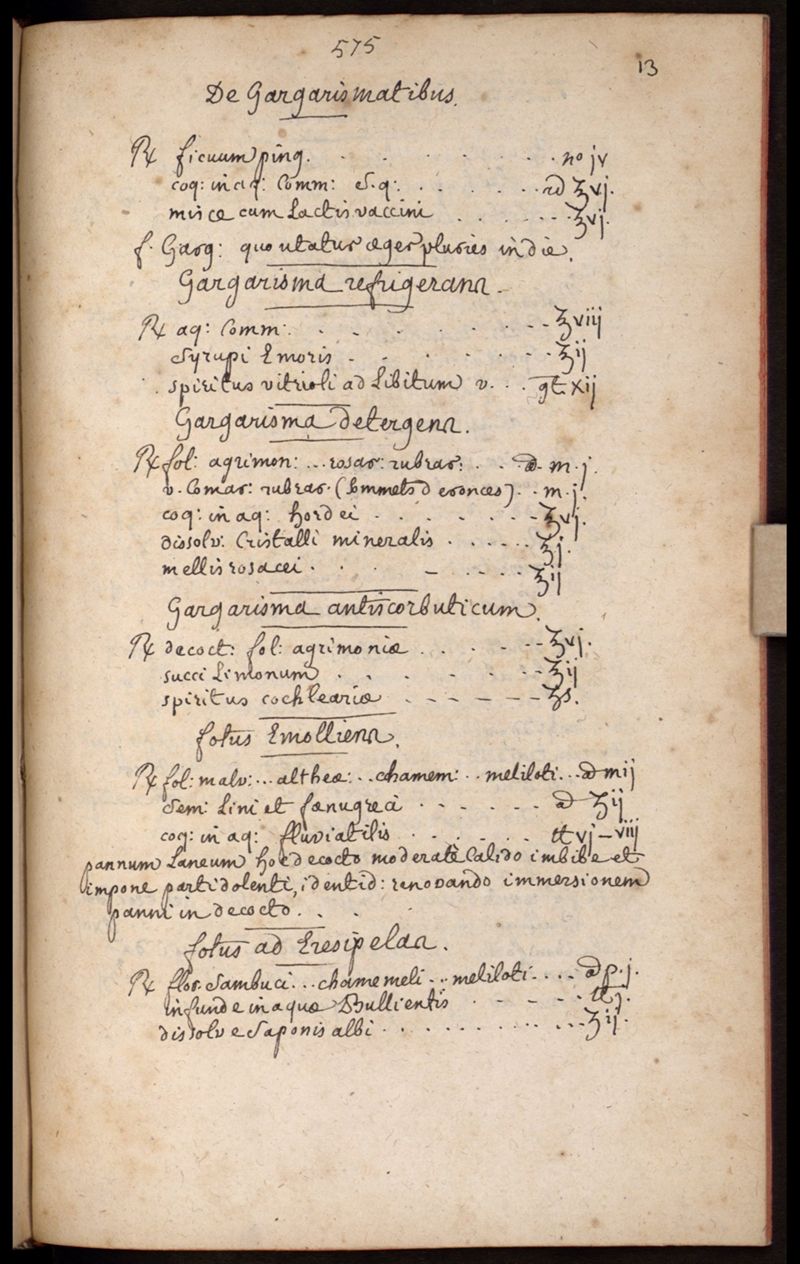 575
13
De Gargarismatibus.
℞ ficuum ping. . . . . . . no jv
coq: in aq: Comm: S.q: . . . . . . ad ℥vj.
misce cum Lactis vaccini . . . . . ℥vj.
f. Garg: quo utatur æger pluries in die.
Gargarisma refrigerans.
℞ aq: Comm: . . . . . . . ℥viij
Syrupi Emoris . . . . . . ℥ij
spiritus vitrioli ad Libitum v. . . gt xij
Gargarisma detergens.
℞ fol: agrimon: ... rosar: rubrar: . . a m.j.
v. Comar: rubrar. (sommets d'eronces). . m.j.
coq: in aq: hordei . . . . . . . ℥vj.
dissolv: Cristalli mineralis . . . . . . ʒj.
mellis rosacei . . . . . . . ℥ij
Gargarisma antiscorbuticum.
℞ decoct: fol: agrimoniæ . . . . . ℥vj.
succi Limonum . . . . . . . ℥ij
spiritus cochleariæ . . . . . . ℥s.
fotus Emolliens.
℞ fol: malv: ... altheæ: .. chamem: .. meliloti... a mij
Sem: Lini et fænugreci . . . . . . a ℥ij
coq: in aq: fluviatilis . . . . . . ℔ vj - viij
pannum Laneum hoc decocto moderatè Calido imbibe et
impone parti dolenti, identid: renovando immersionem
panni in decocto. . .
fotus ad Eresipelas.
℞ flor. Sambuci... chamemeli .. meliloti. . . a p.j.
infunde in aquæ Bullientis . . . . . ℔j.
dissolve Saponis albi . . . . . . . . . ℥ij.